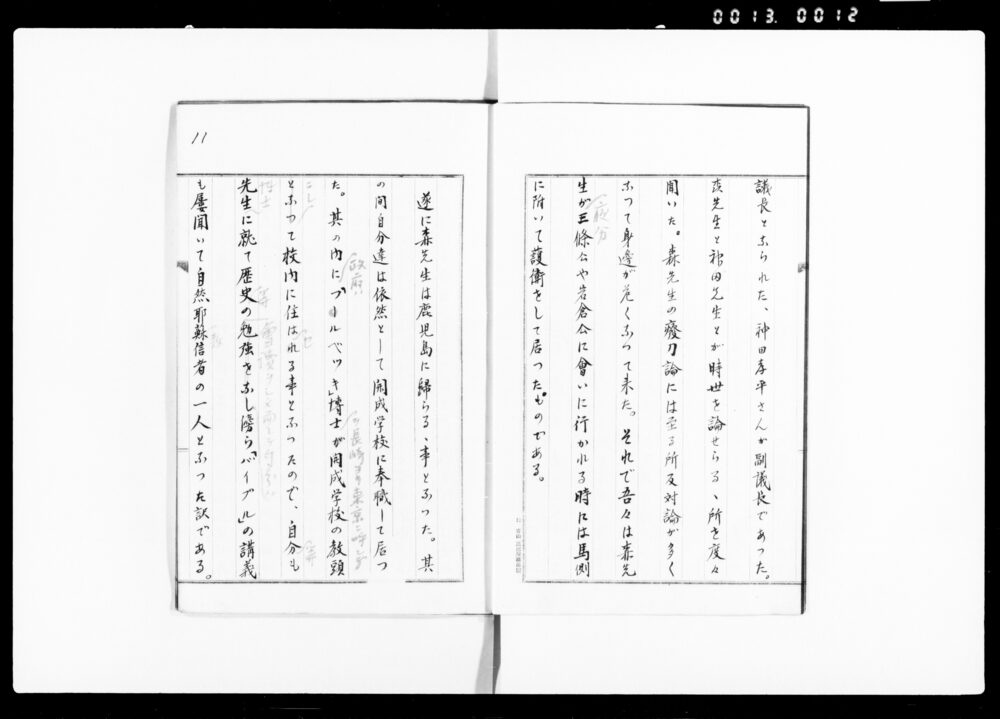 0013. 0012
議長となられた、神田孝平さんが副議長であつた。
森先生と神田先生とが時世を論せらるゝ所を度々
聞いた。森先生の癈刀論には至る所反対論が多く
なつて身邊が危くなつて来た。それで吾々は森先
生が三條公や岩倉公に會いに行かれる時には馬側
に附いて護衛をして居つたものである。
11
遂に森先生は鹿児島に歸らるゝ事となつた。其
の间自分達は依然として開成学校に奉職して居つ
政府ハ
た。其の内に「ブールベツキ」博士が開成学校の教頭
となつて校内に住はれる事となつたので、自分も
先生に就て歴史の勉強をなし傍ら「バイブル」の講義
も屡聞いて自然耶蘇信者の一人となつた訳である。